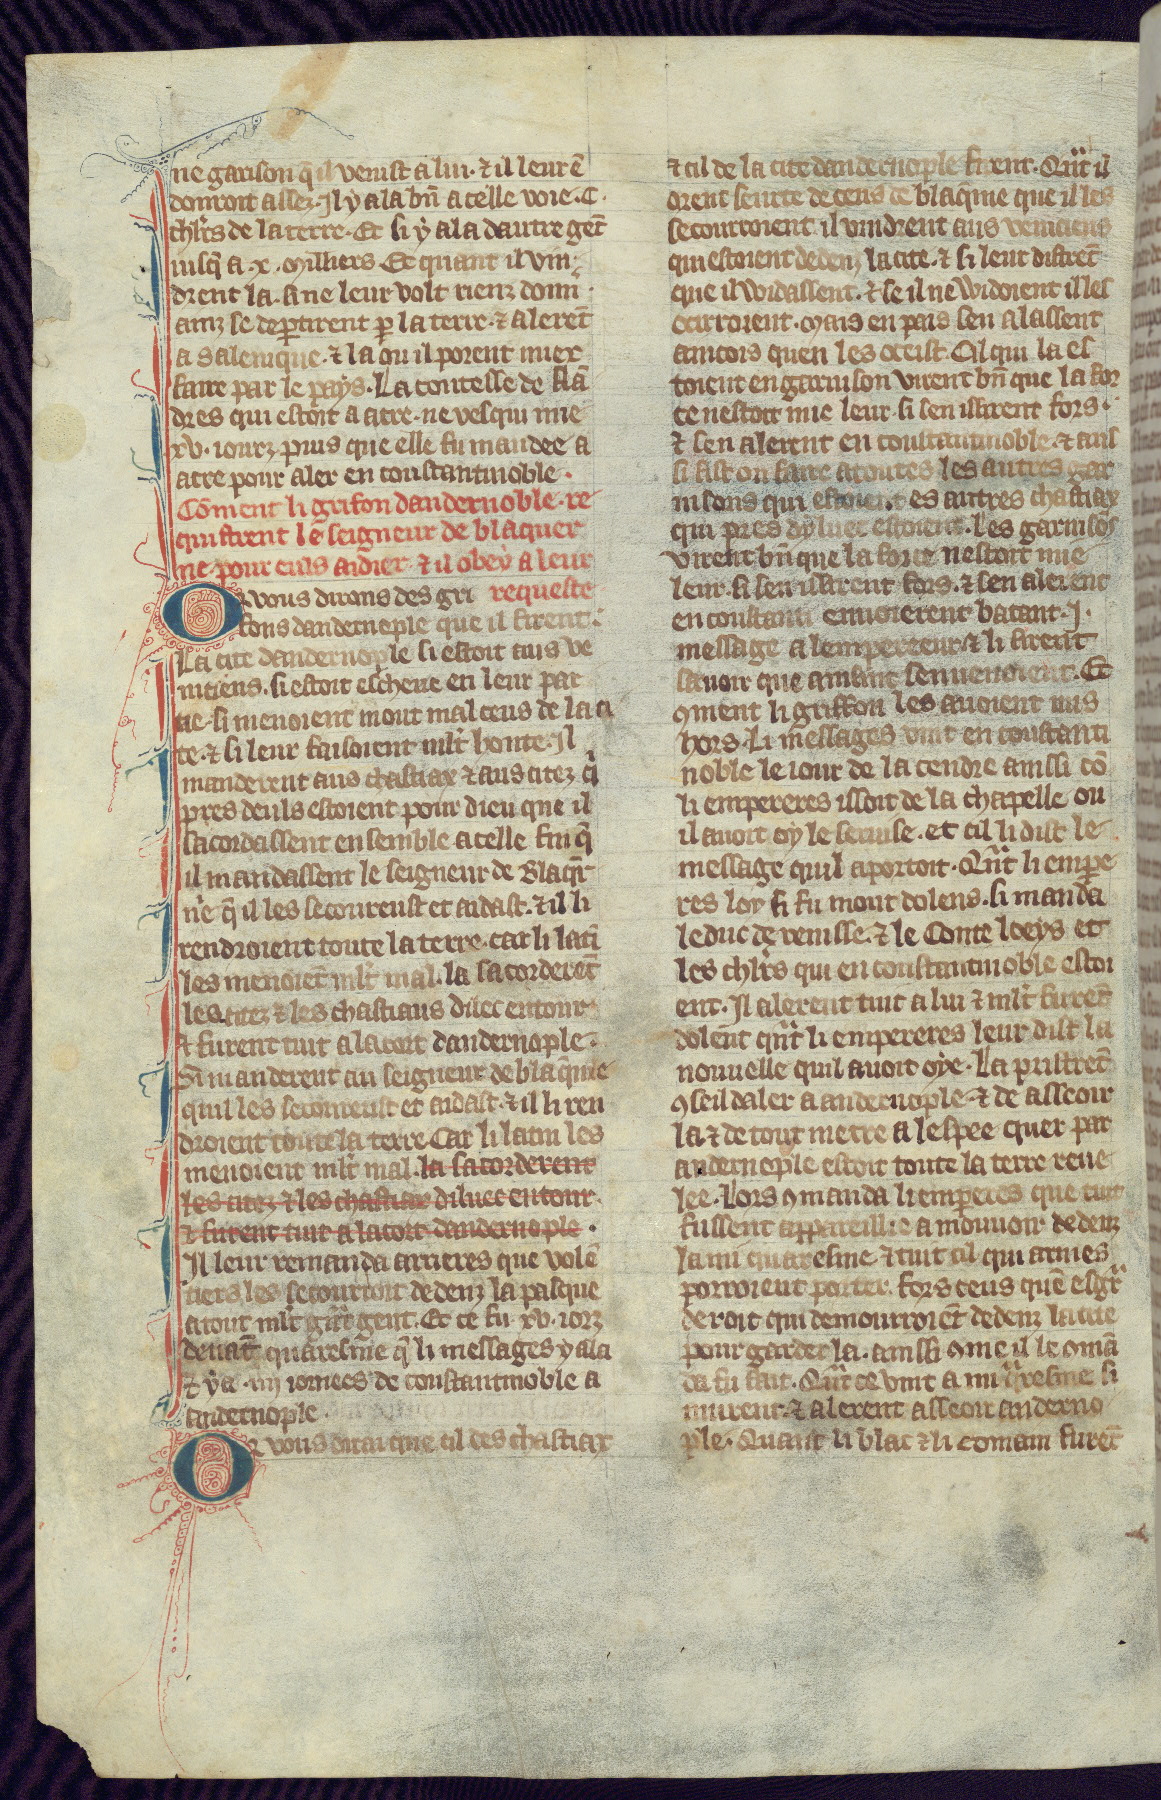 ne garison q̃ il venist a lui · ⁊ il leur ẽ
donroit assez · Il y ala bñ a celle voie · C ·
chl̃rs de la terre · Et si y ala dautre gẽt
iusq̃ a · x · milliers Et quant il vin
drent la · si ne leur volt rienz donñ ·
ainz se dep̃tirent p̃ la terre · ⁊ alerẽt
a salenique · ⁊ la ou il porent miex
faire par le pays · La contesse de flã
dres qui estoit a acre · ne vesqui mie
xv · iourz · puis que elle fu mandee a
acre pour aler en constantinoble ·
Cõment li grifon dandernoble · re
quistrent le seigneur de blaquer
ne pour euls aidier · ⁊ il obey a leur
requeste
Or vous dirons des gri
fons dandernople que il firent ·
La cite dandernople si estoit aus ve
niciens · si estoit escheue en leur par
tie · si menoient mout mal ceus de la ci
te · ⁊ si leur faisoient ml̃t honte · Il
manderent aus chastiax ⁊ aus citez q̃
pres deuls estoient pour dieu que il
sacordassent ensemble a celle fin q̃
il mandassent le seigneur de Blaq̃r
ne q̃ il les secoureust et aidast · ⁊ il li
rendroient toute la terre · car li latĩ
les menoiẽt ml̃t mal · la sacorderẽt
les citez ⁊ les chastiaus diluec entour
⁊ furent tuit a lacort dandernople ·
Si manderent au seigneur de blaq̃rne
quil les secoureust et aidast · ⁊ il li ren
droient toute la terre Car li latin les
menoient ml̃t mal · la sacorderent
les citez ⁊ les chastiax diluec entour
⁊ furent tuit a lacort dandernople ·
Il leur remanda arrieres que volẽ
tiers les secourroit dedenz la pasque
atout ml̃t grãt gent · Et ce fu · xv · iorz
deuãt quaresme q̃ li messages y ala
⁊ y a · iiij iornees de constantinoble a
andernople ·
Or vous dirai que cil des chastiax
⁊ cil de la cite dandernople firent · Quãt il
orent seurte de ceus de blaq̃nie que il les
secourroient · il vindrent aus veniciens
qui estoient dedenz la cite · ⁊ si leur distrẽt
que il widassent · ⁊ se il ne widoient il les
ocirroient · Mais en pais sen alassent
aincois quen les oceist · Cil qui la es
toient en garnison virent bñ que la for
ce nestoit mie leur · si sen issirent fors ·
⁊ sen alerent en constantinoble · ⁊ ausi
si fist on faire a toutes les autres gar
nisons qui estoient es autres chastiax
qui pres diluec estoient · Les garnisõs
virent bñ que la force nestoit mie
leur · si sen issirent fors · ⁊ sen alerent
en constanti envoierent batant · J ·
message a lempereeur · ⁊ li firent
sauoir que ainsint senuenoient · Et
9ment li griffon les auoient mis
hors · Li messages vint en constanti
noble le iour de la cendre ainssi cõ
li empereres issoit de la chapelle ou
il auoit oy le seruise · et cil li dist le
message quil aportoit · Quãt li emp̃e
res loy si fu mout dolens · si manda
le duc de venisse · ⁊ le Conte loeys et
les chl̃rs qui en constantinoble estoi
ent · Il alerent tuit a lui ⁊ ml̃t furẽt
dolent quãt li empereres leur dist la
nouuelle quil auoit oye · La pristrẽt
9seil daler a andernople · ⁊ de asseoir
la · ⁊ de tout metre a lespee quer par
andernople estoit toute la terre reue
lee · Lors 9manda li emp̃eres que tuit
fussent appareillie a mouuoir dedenz
la mi quaresme · ⁊ tuit cil qui armes
porroient porter · fors ceus quẽ esgr̃
deroit qui demourroiẽt dedenz la cite
pour garder la · ainssi 9me il le 9mã
da fu fait · Quãt ce vint a mi q̃resme si
murent · ⁊ alerent asseoir anderno
ple · Quant li blac ⁊ li comain furẽt